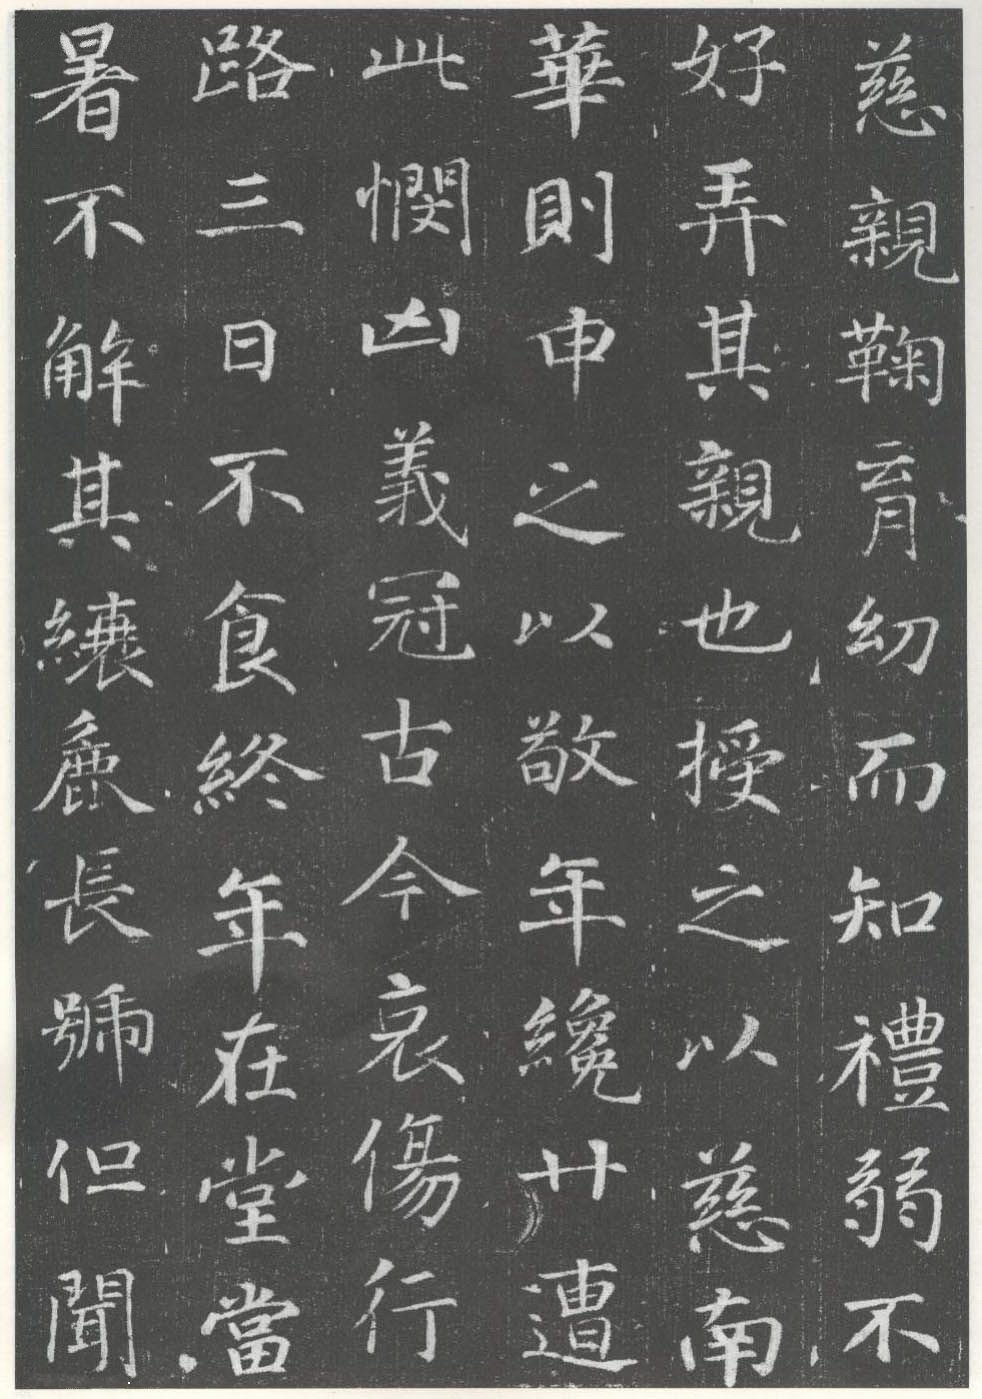 慈親鞠育幼而知禮弱不
好弄其親也授之以慈南
華則申之以敬年纔廾遭
此憫凶義冠古今哀傷行
路三日不食終年在堂當
暑不解其纕麁長號但聞